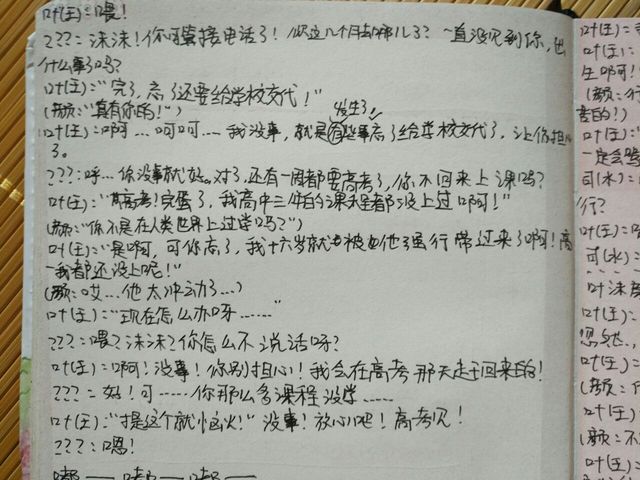 叶(王)：喂！
？？？：沫沫！你可算接电话了！你这几个月去哪儿了？一直没见到你，出
什么事了吗？
叶(王)："完了，忘了还要给学校交代！"
(颜："真有你的！")
发生了
叶(王)：啊…呵呵…我没事，就是有些事忘了给学校交代了，让你担心
了。
？？？：呼…你没事就好。对了，还有一周都要高考了，你不回来上课吗？
叶(王)："高考！完蛋了，我高中三年的课我是都没上过啊！"
(颜："你不是在人类世界上过学吗？")
叶(王)："是啊，可你忘了，我十六岁就被他强行带过来了啊！高
一我都还没上呢！"
(颜：哎…他太冲动了…)
叶(王)："现在怎么办呀……"
？？？：喂？沫沫？你怎么不说话呀？
叶(王)：啊！没事！你别担心！我会在高考那天赶回来的！
？？？：好！可……你那么多课程没学……
叶(王)："提这个就恼火！"没事！放心吧！高考见！
？？？：嗯！
嘟——嘟——嘟——
叶(王)：
叶(王)：
生啊！
(颜：
叶(王)：
一定会
可(水)：
行？
叶(王)：
可(水)：
叶沫
叶(王)：
(颜：
叶(王)：
(颜：不
叶(王)：